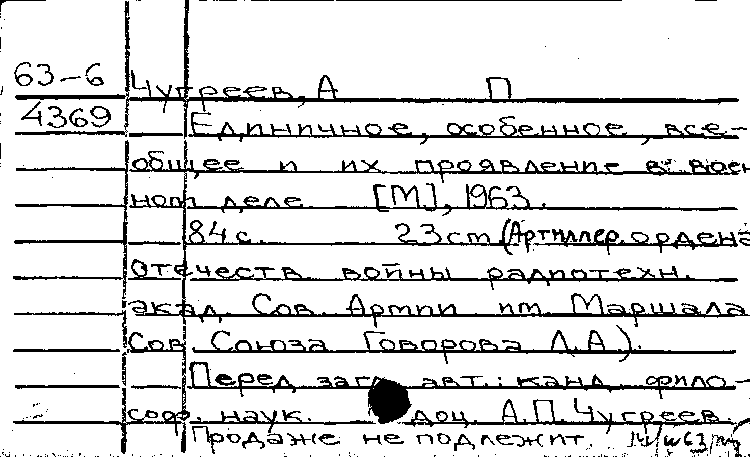 63-6 Чугреев, А П
4369 Единичное, особенное, все-
общее и их проявление в воен
ном деле [М], 1963.
84 с. 23 cm (Артиллер. ордена
Отечеств. войны радиотехн.
акад. Сов. Армии им. Маршала
Сов. Союза Говорова Л.А.).
Перед загл. авт.: канд. фило-
соф. наук. доц. А.П. Чугреев.
Продаже не подлежит.